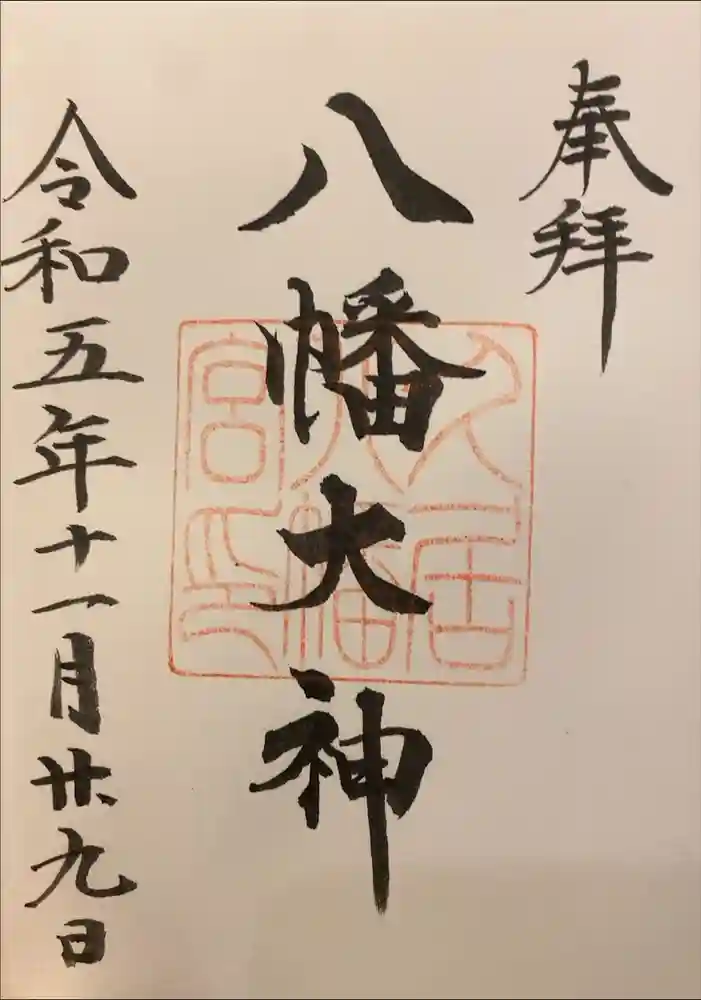 奉拝
八幡大神
入居
八幡
宮印
令和五年十一月廿九日